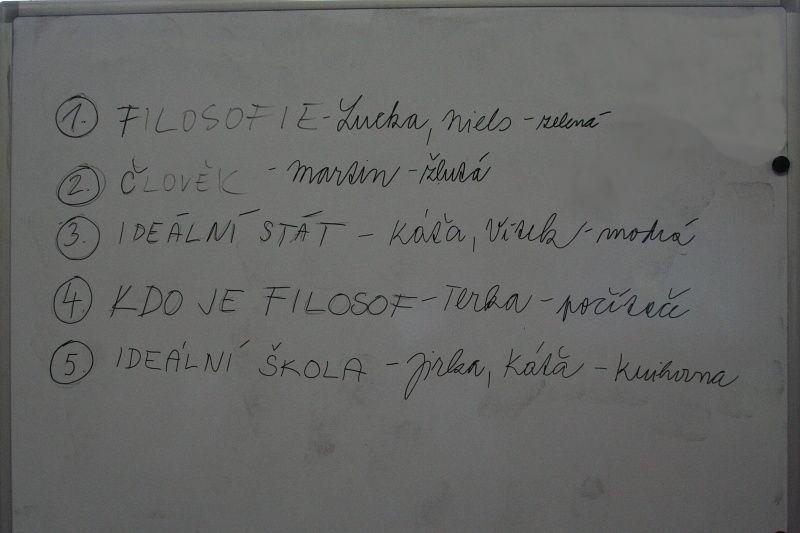 1. FILOSOFIE - Lucka, Niels - zelená
2. ČLOVĚK - Martin - žlutá
3. IDEÁLNÍ STÁT - Káťa, Vítek - modrá
4. KDO JE FILOSOF - Terka - počítače
5. IDEÁLNÍ ŠKOLA - Jirka, Káťa - knihovna